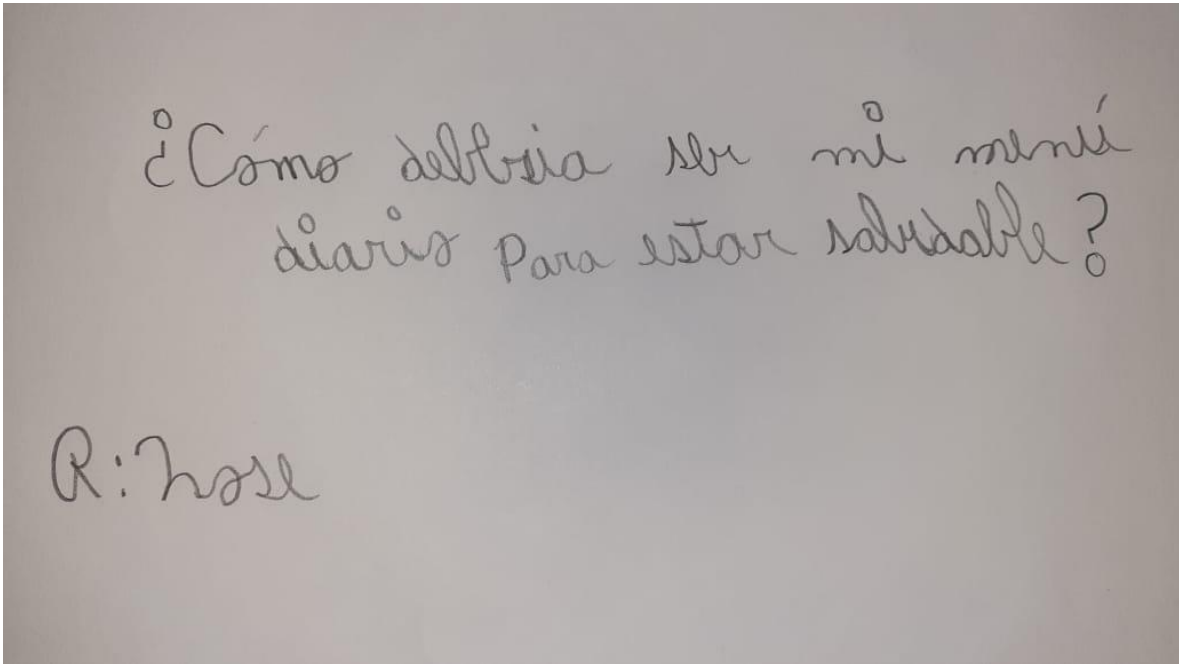 ¿Cómo debería ser mi menú
diario para estar saludable?
R: nose